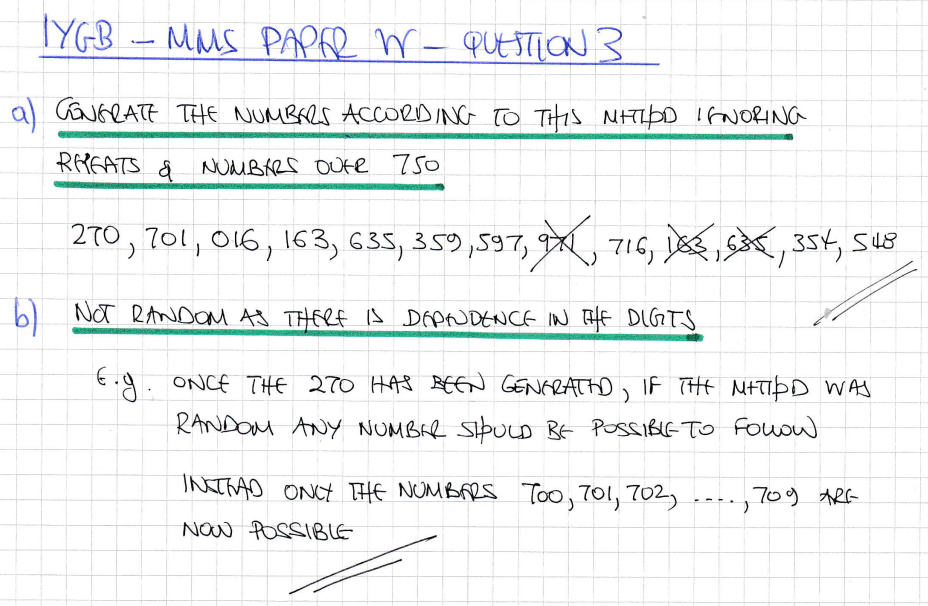 IYGB - MMS PAPER W - QUESTION 3
a) GENERATE THE NUMBERS ACCORDING TO THIS METHOD IGNORING
REPEATS & NUMBERS OVER 750
270, 701, 016, 163, 635, 359, 597, 971, 716, 163, 635, 354, 548
b) NOT RANDOM AS THERE IS DEPENDENCE IN THE DIGITS
E.g. ONCE THE 270 HAS BEEN GENERATED, IF THE METHOD WAS
RANDOM ANY NUMBER SHOULD BE POSSIBLE TO FOLLOW
INSTEAD ONLY THE NUMBERS 700, 701, 702, ...., 709 ARE
NOW POSSIBLE